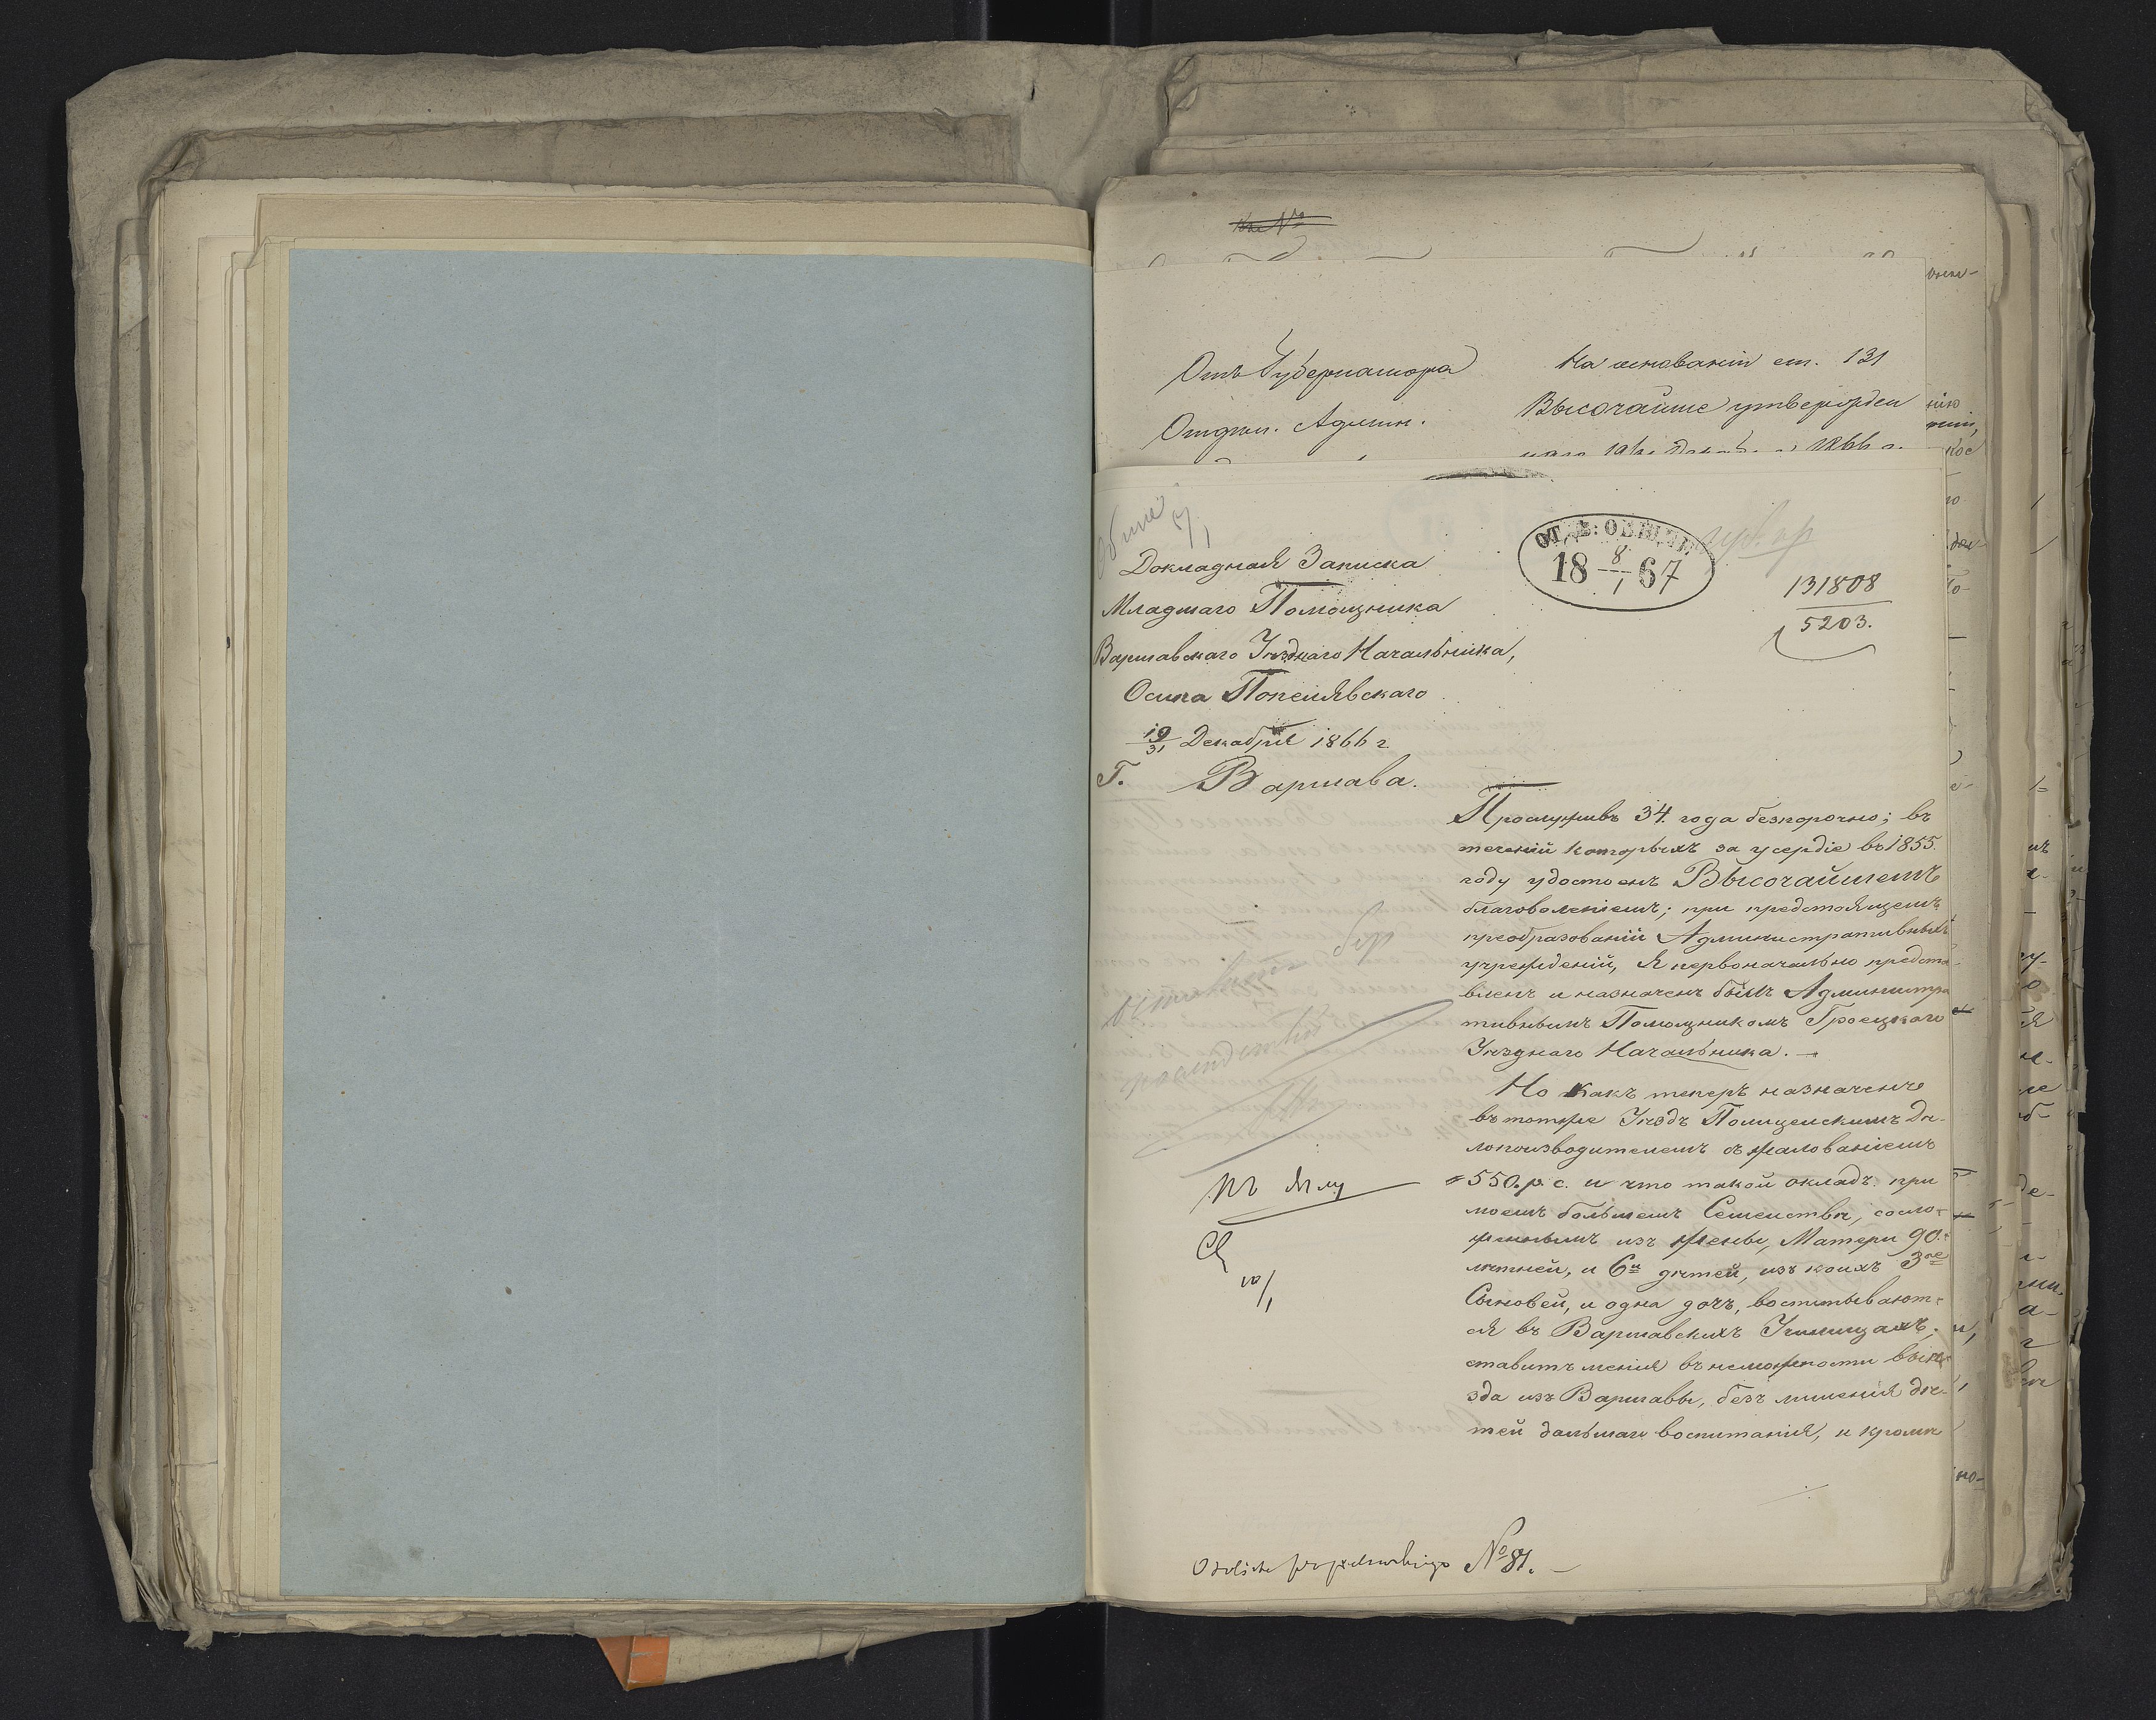 Отъ Губернатора
Отдѣл. Админ.
На основаніи ст. 131
Высочайше утвержден
наго 19/31 Декабря 1866 г.
ОТД: ОБЩІЙ.
18 8/1 67
131808
5203.
Докладная Записка
Младшаго Помощника
Варшавскаго Уѣзднаго Начальника,
Осипа Попелявскаго
19/31 Декабря 1866 г.
Г. Варшава.
Прослуживъ 34. года безпорочно; въ
теченіи которыхъ за усердіе въ 1855.
году удостоенъ Высочайшемъ
благоволеніемъ; при предстоящемъ
преобразованіи Административныхъ
учрежденій, я первоначально предста-
вленъ и назначенъ былъ Администра
тивнымъ Помощникомъ Гроецкаго
Уѣзднаго Начальника. —
Но какъ теперъ назначенъ
въ тотже Уѣздъ Полицейскимъ Дѣ-
лопоизводителемъ съ жалованіемъ
550. р. с. и что такой окладъ при
моемъ большемъ Семействѣ, сосло-
женнымъ изъ жены, Матери 90.
лѣтней, и 6и дѣтей, изъ коихъ 3ое
Сыновей, и одна дочъ, воспитывают-
ся въ Варшавскихъ Училищахъ;
ставитъ меня въ неможности выѣ-
зда изъ Варшавы, безъ лишенія дѣ-
тей дальшаго воспитанія, и кромѣ
къ дѣлу
10/1
№ 81. —